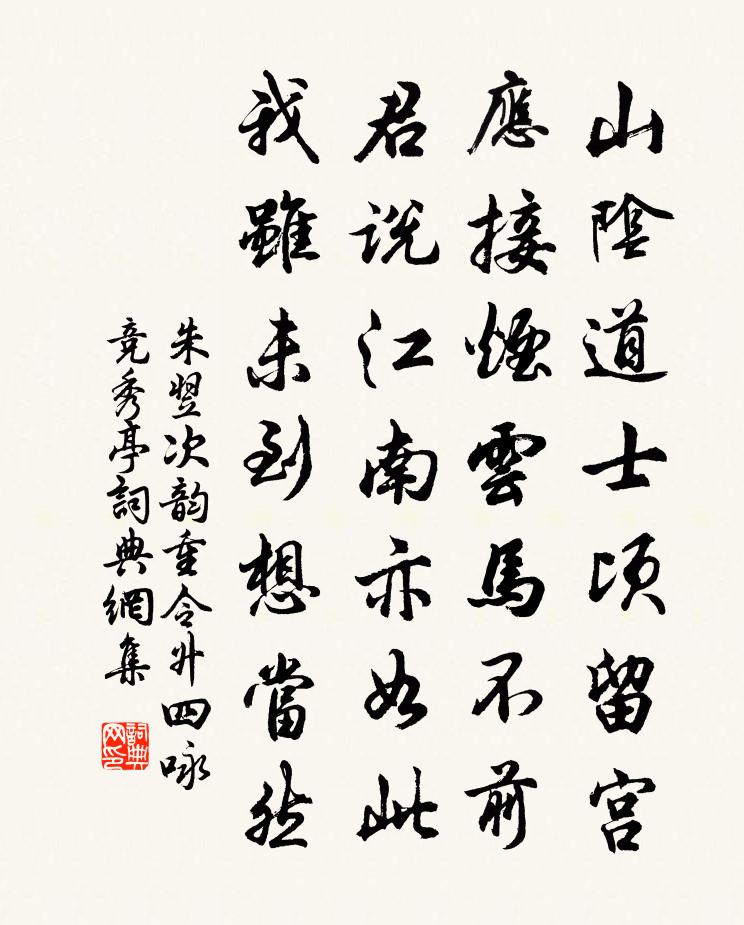 山陰道士頃留宮
應接煙雲馬不前
君說江南亦如此
我雖未到想當然
朱翌次韵重令升四咏
竞秀亭詞典網集
詞典网印